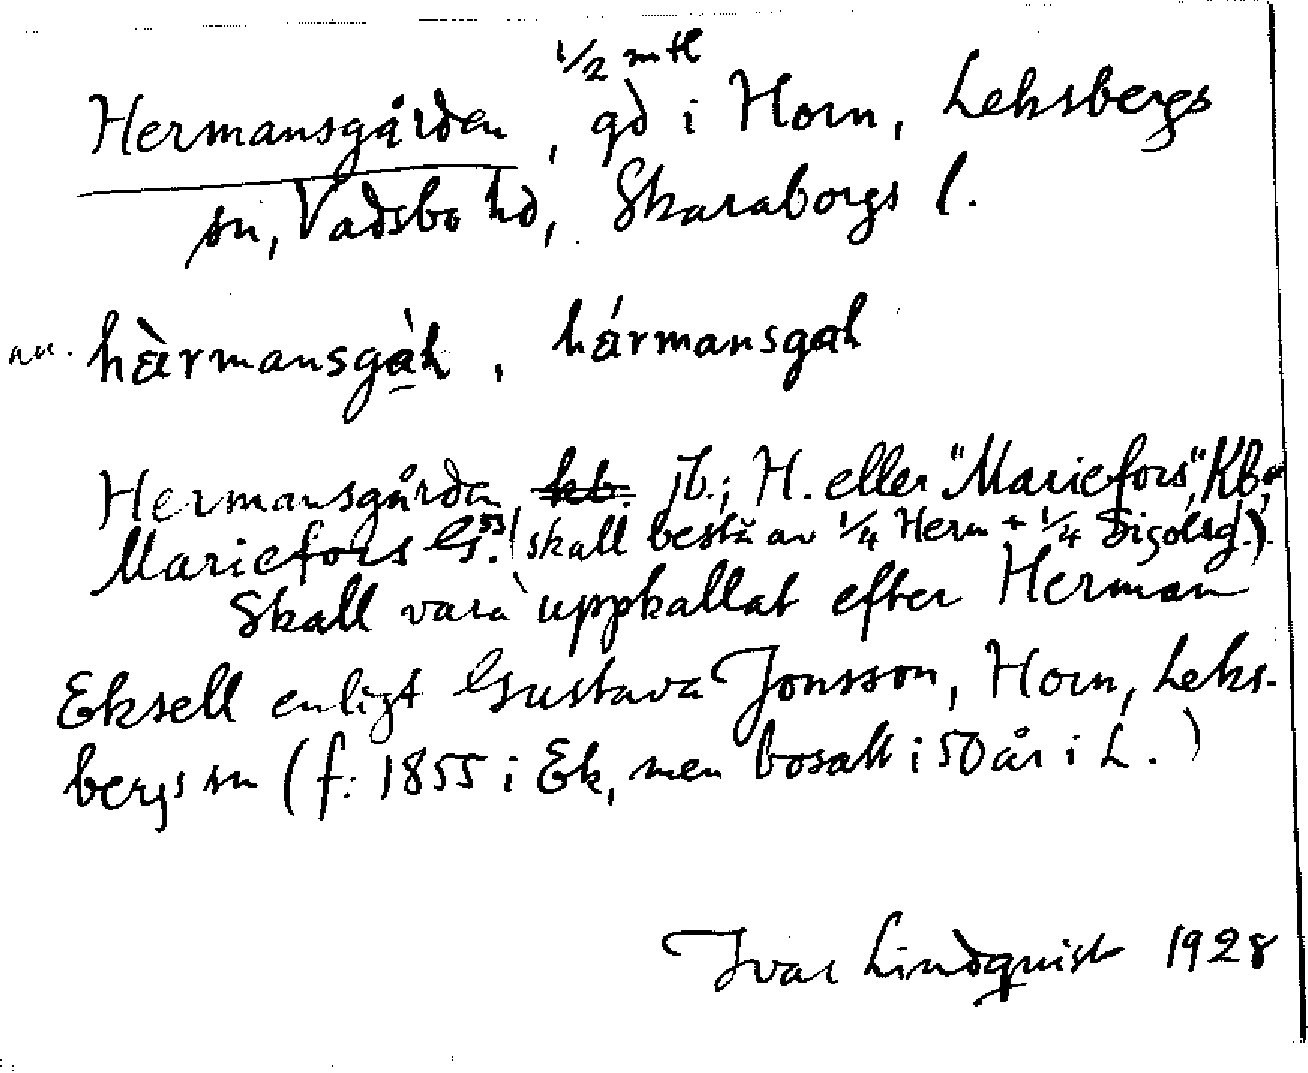 1/2 mtl
Hermansgården, gd i Horn, Leksbergs
sn, Vadsbo hd, Skaraborgs l.
hàrmansgàh, hármansgah
Hermansgården kb. jb.; H. eller "Mariefors", Kb.
Mariefors GS. 53 (skall bestå av 1/4 Herm + 1/4 Sigolsg.).
Skall vara uppkallat efter Herman
Eksell enligt Gustava Jonsson, Horn, Leks-
bergs sn (f. 1855 i Ek, men bosatt i 50 år i L.)
Ivar Lindquist 1928